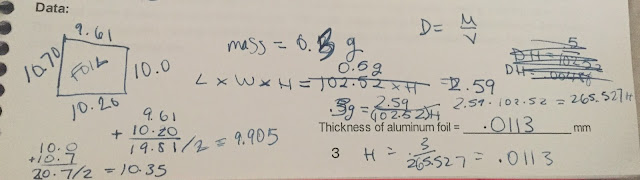 Data:
9.61
10.70 FOIL 10.0
10.20
mass = 0.3 g
D = M/V
L x W x H = 0.5g / 102.52 x H = 2.59
.3g = 2.59 / (102.52)H
2.59 · 102.52 = 265.527 H
9.61
+ 10.20
19.81 /2 = 9.905
10.0
+10.7
20.7/2 = 10.35
Thickness of aluminum foil = .0113 mm
3 H = 3 / 265.527 = .0113